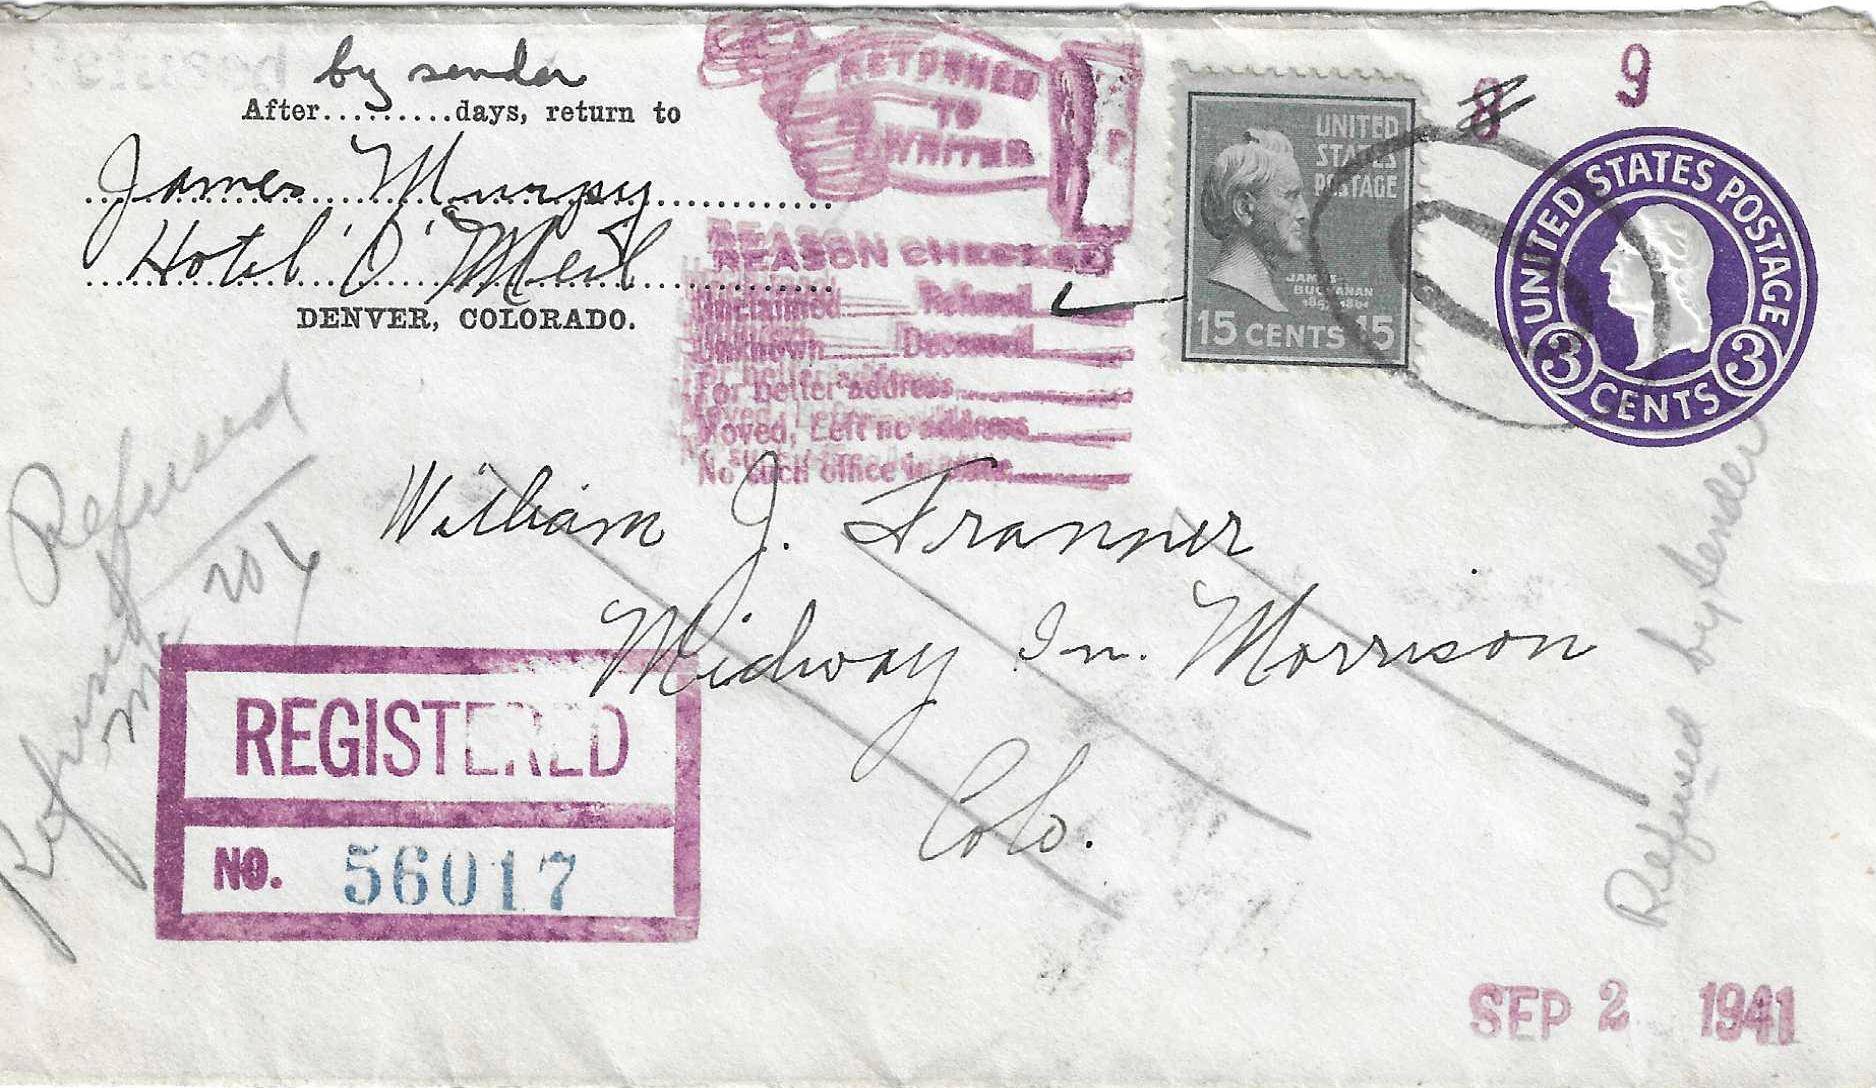 by sender
After..........days, return to
James Murpy
Hotel 'O' Meil
DENVER, COLORADO.
RETURNED
TO
WRITER
REASON CHECKED
Unclaimed Refused
Unknown Deceased
For better address
Moved, Left no address
No such office in state
UNITED
STATES
POSTAGE
JAMES
BUCHANAN
1857 1861
15 CENTS 15
8
9
UNITED STATES POSTAGE
3 CENTS 3
Refused
Refused
204
William J. Franner
Midway In. Morrison
Colo.
REGISTERED
NO. 56017
Refused by sender
SEP 2 1941